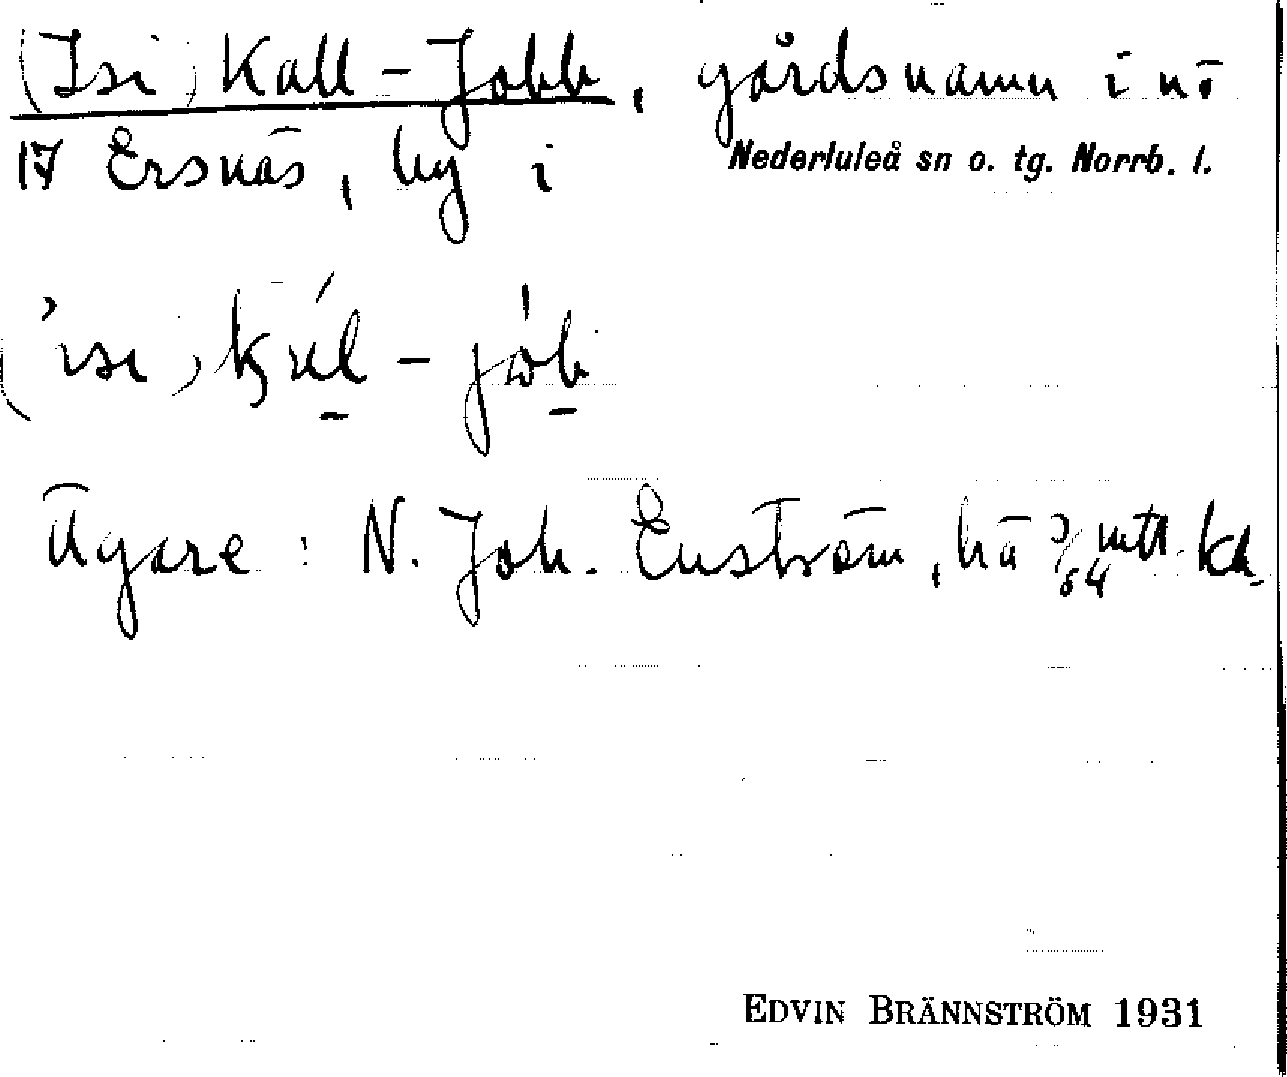 (Isi) Kall-Jobb, gårdsnamn i nr
17 Ersnäs, by i Nederluleå sn o. tg. Norrb. l.
Ägare: N. Joh. Enström, hä 3/64 mtl
EDVIN BRÄNNSTRÖM 1931